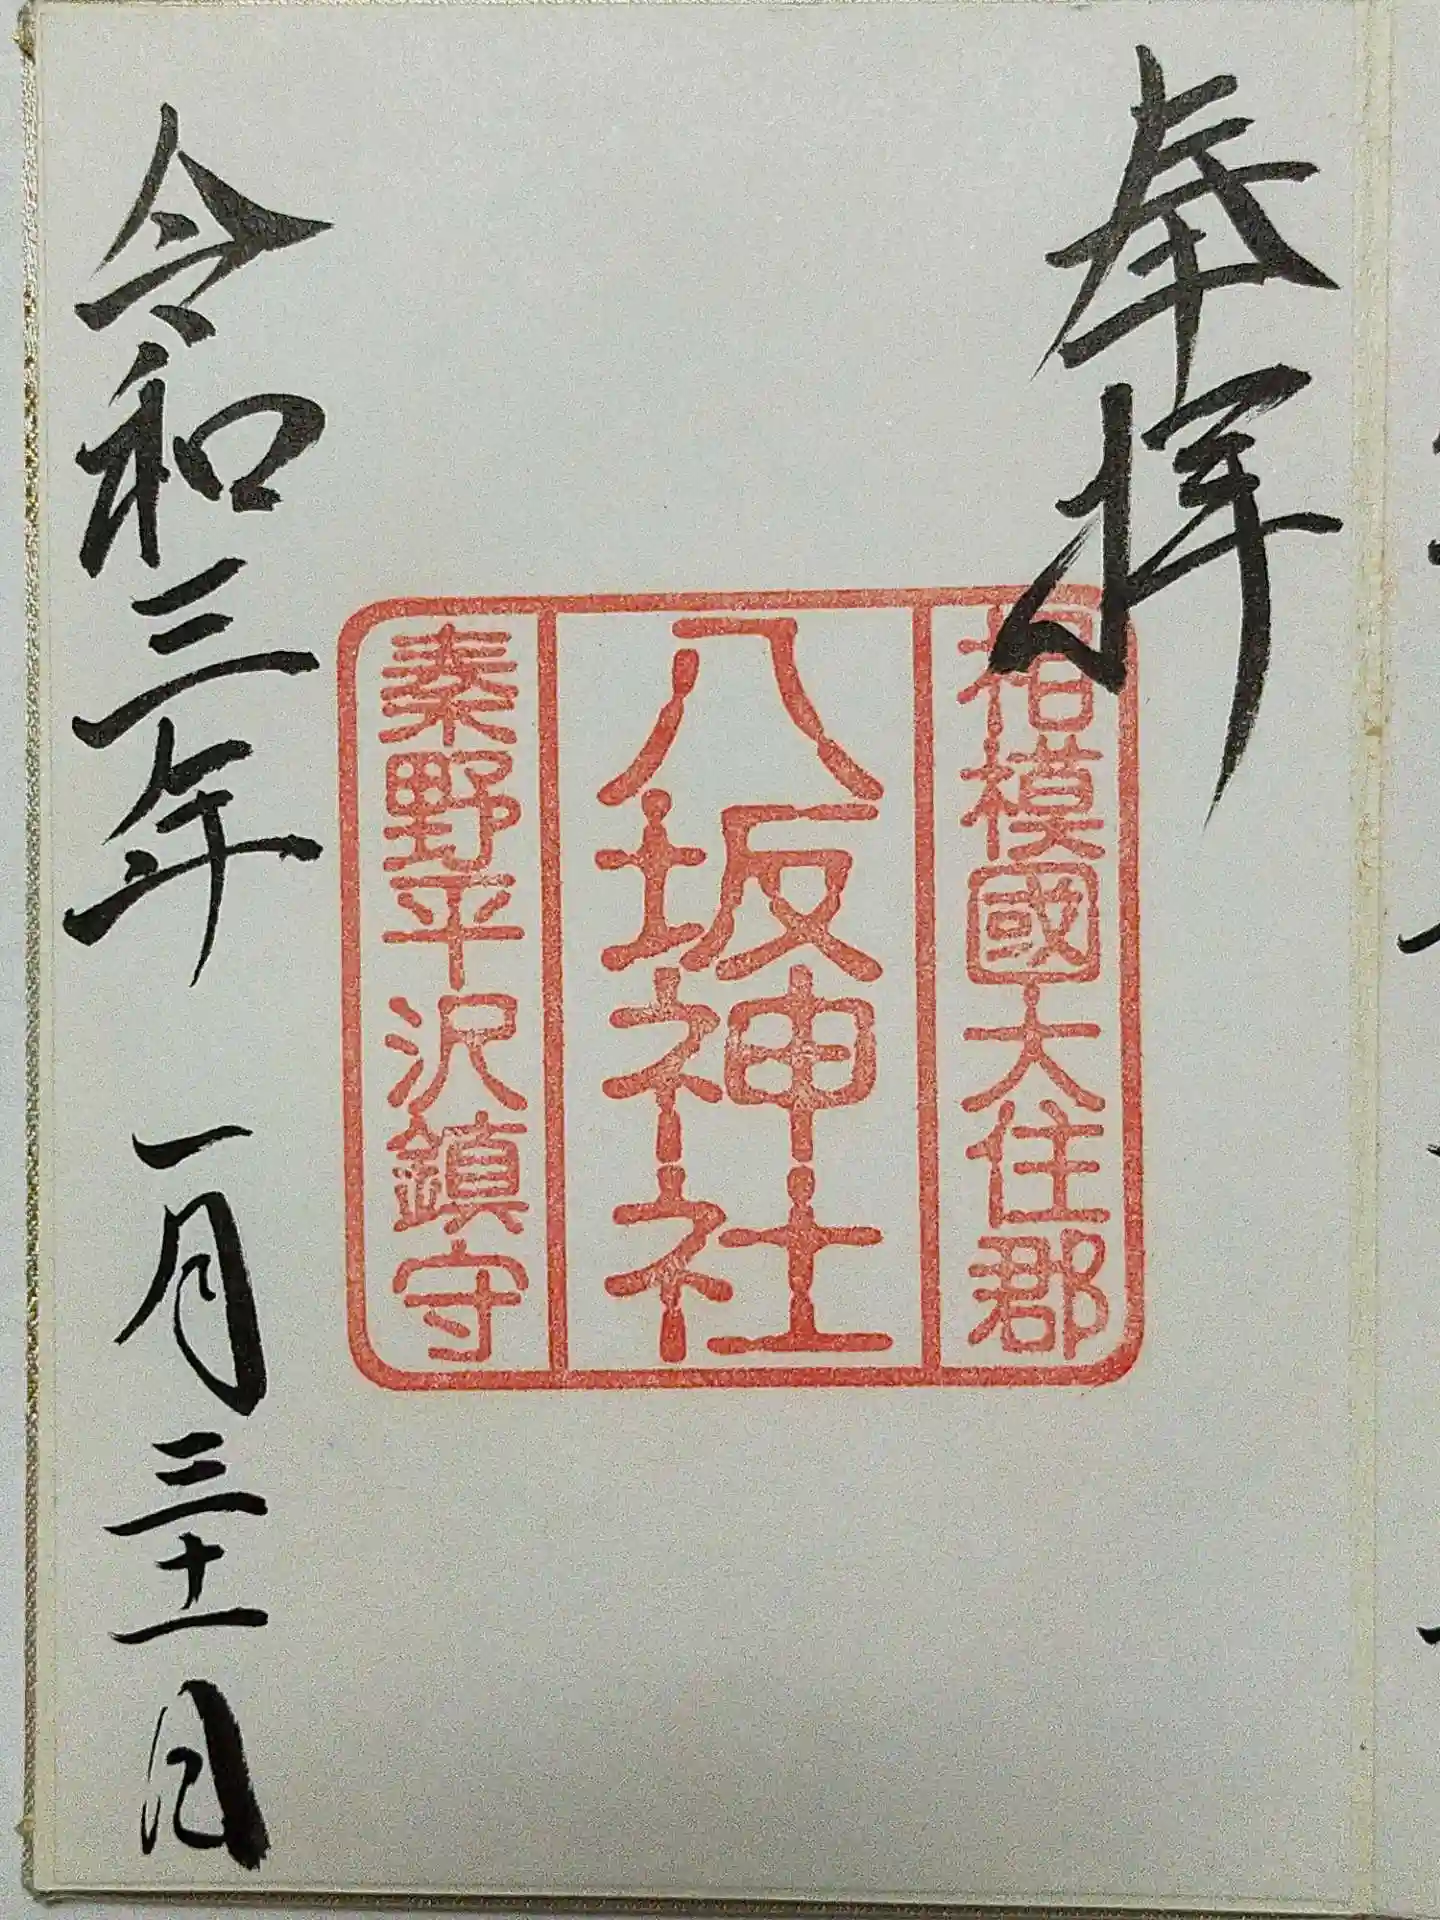 奉拝
相模國大住郡
八坂神社
秦野平沢鎮守
令和三年 一月三十一日